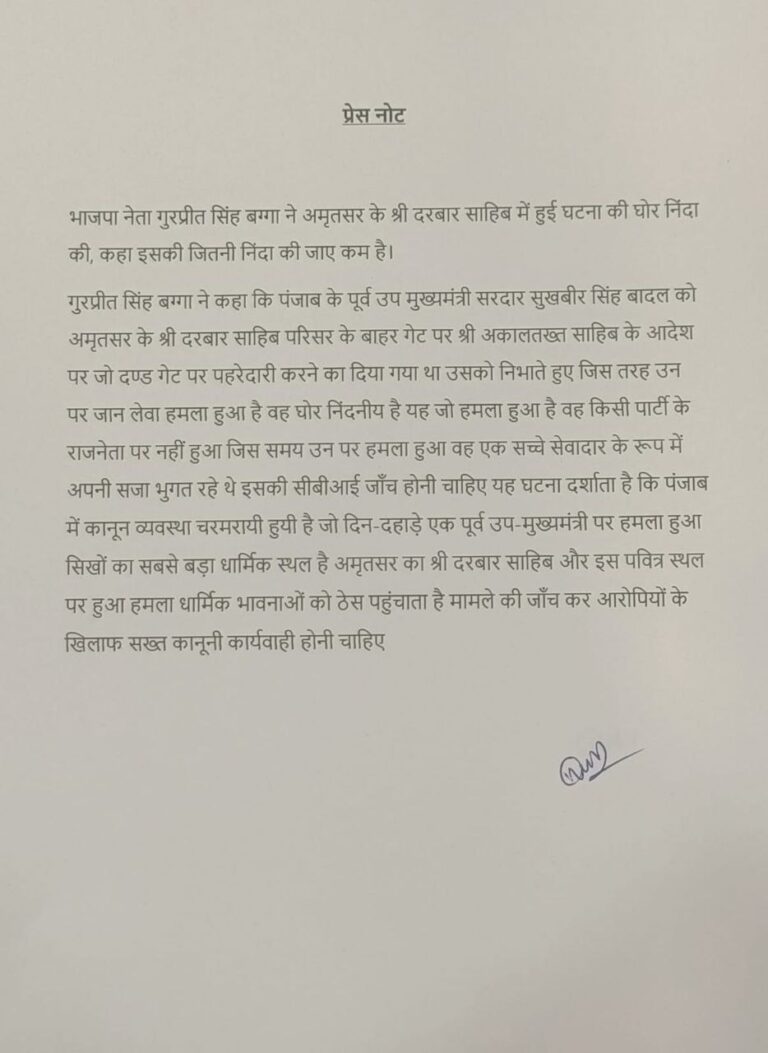 प्रेस नोट
भाजपा नेता गुरप्रीत सिंह बग्गा ने अमृतसर के श्री दरबार साहिब में हुई घटना की घोर निंदा
की, कहा इसकी जितनी निंदा की जाए कम है।
गुरप्रीत सिंह बग्गा ने कहा कि पंजाब के पूर्व उप मुख्यमंत्री सरदार सुखबीर सिंह बादल को
अमृतसर के श्री दरबार साहिब परिसर के बाहर गेट पर श्री अकालतख्त साहिब के आदेश
पर जो दण्ड गेट पर पहरेदारी करने का दिया गया था उसको निभाते हुए जिस तरह उन
पर जान लेवा हमला हुआ है वह घोर निंदनीय है यह जो हमला हुआ है वह किसी पार्टी के
राजनेता पर नहीं हुआ जिस समय उन पर हमला हुआ वह एक सच्चे सेवादार के रूप में
अपनी सजा भुगत रहे थे इसकी सीबीआई जाँच होनी चाहिए यह घटना दर्शाता है कि पंजाब
में कानून व्यवस्था चरमरायी हुयी है जो दिन-दहाड़े एक पूर्व उप-मुख्यमंत्री पर हमला हुआ
सिखों का सबसे बड़ा धार्मिक स्थल है अमृतसर का श्री दरबार साहिब और इस पवित्र स्थल
पर हुआ हमला धार्मिक भावनाओं को ठेस पहुंचाता है मामले की जाँच कर आरोपियों के
खिलाफ सख्त कानूनी कार्यवाही होनी चाहिए